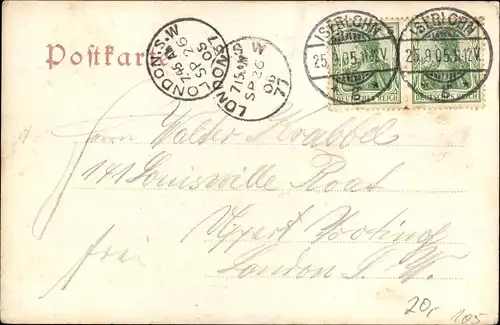 Postkarte
LONDON.S.W
7.45 AM
SP 26
05
LONDON S.W
7.15 AM
SP 26
05
77
ISERLOHN
25.9.05.11-12V.
ISERLOHN
25.9.05.11-12V.
DEUTSCHES REICH
DEUTSCHES REICH
Herrn Walter Krabbel
141 Louisville Road
Upper Tooting
frei
London S. W.
20,-
105